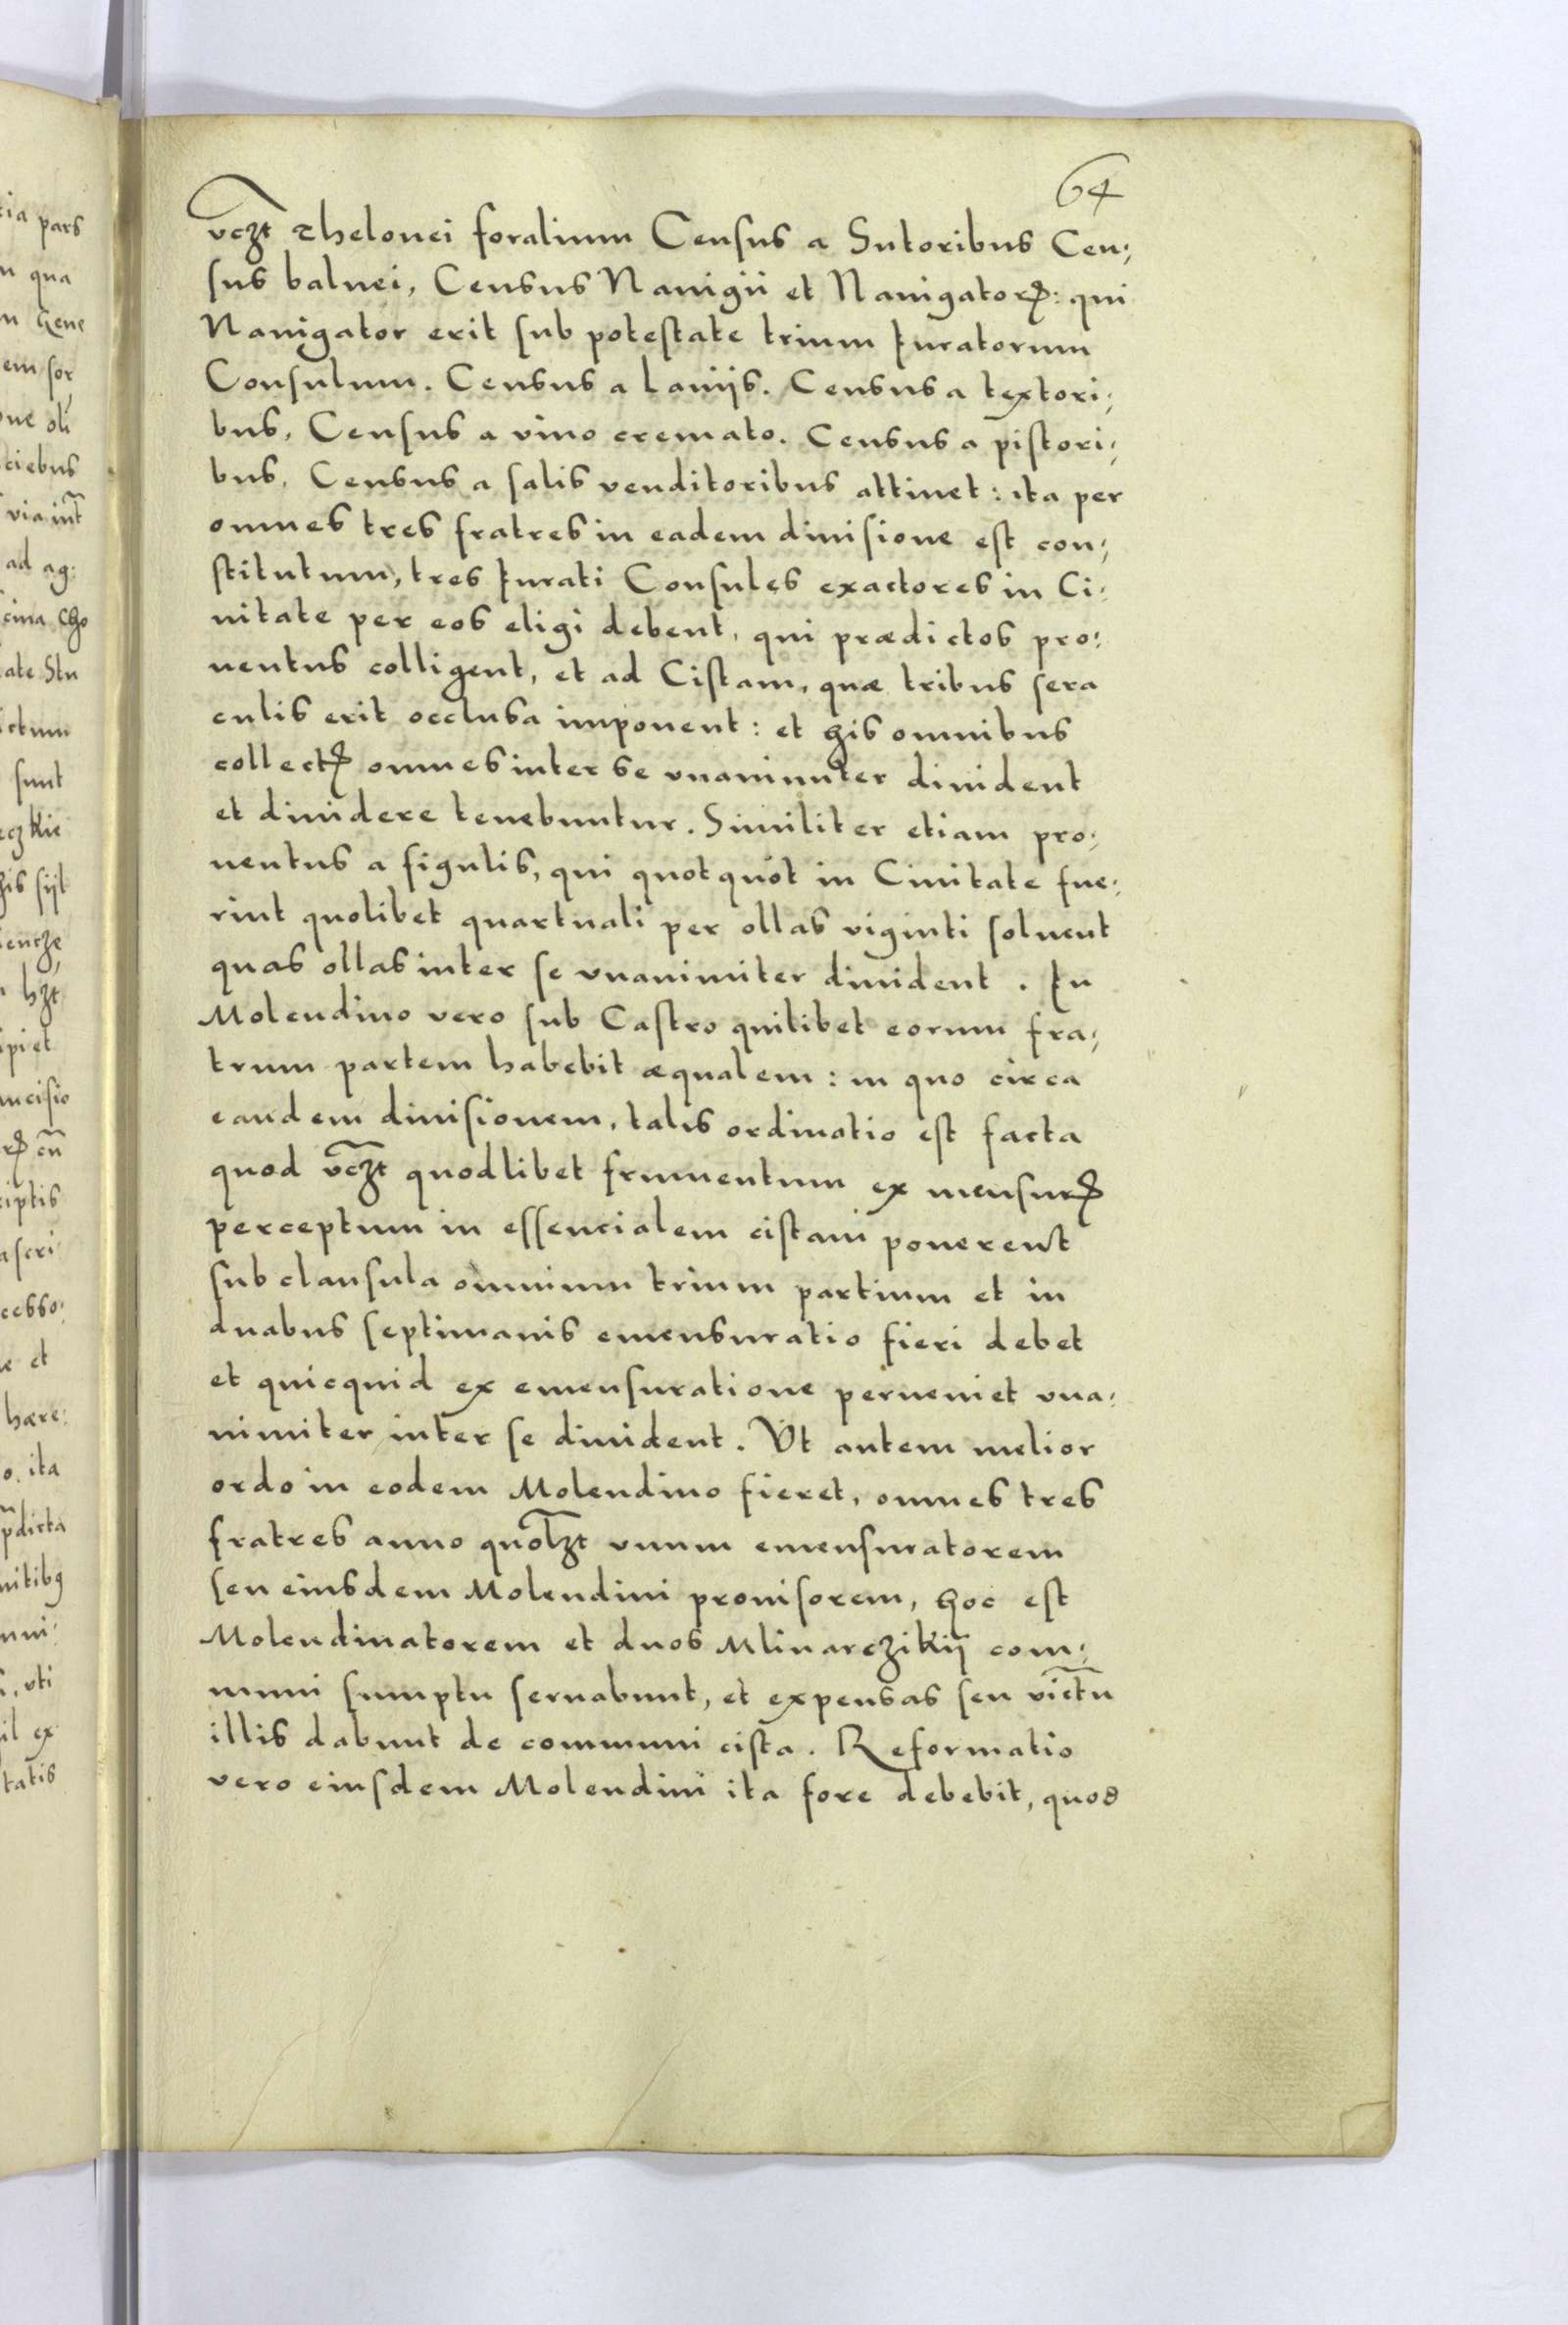 64
vczt Thelonei foralium Census a Sutoribus Cen;
sus balnei, Census Nauigii et Nauigatorꝝ: qui
Nauigator erit sub potestate trium Iuratorum
Consulum. Census a laniis. Census a textori;
bus, Census a vino cremato. Census a pistori;
bus, Census a salis venditoribus attinet: ita per
omnes tres fratres in eadem diuisione est con;
stitutum, tres Iurati Consules exactores in Ci:
uitate per eos eligi debent, qui prædictos pro:
uentus colligent, et ad Cistam, quæ tribus sera
culis erit occlusa imponent: et his omnibus
collectꝭ omnes inter se vnanimiter diuident
et diuidere tenebuntur. Similiter etiam pro;
uentus a figulis, qui quotquot in Ciuitate fue;
rint quolibet quartuali per ollas viginti soluent
quas ollas inter se vnanimiter diuident. In
Molendino vero sub Castro quilibet eorum fra;
trum partem habebit æqualem: in quo circa
eandem diuisionem, talis ordinatio est facta
quod vczt quodlibet frumentum ex mensurꝭ
perceptum in essencialem cistam ponerent
sub clausula omnium trium partium et in
duabus septimanis emensuratio fieri debet
et quicquid ex emensuratione perueniet vna:
nimiter inter se diuident. Vt autem melior
ordo in eodem Molendino fieret, omnes tres
fratres anno quolzt vnum emensuratorem
seu eiusdem Molendini prouisorem, hoc est
Molendinatorem et duos Mlinarczikij com;
muni sumptu seruabunt, et expensas seu victū
illis dabunt de communi cista. Reformatio
vero eiusdem Molendini ita fore debebit, quod